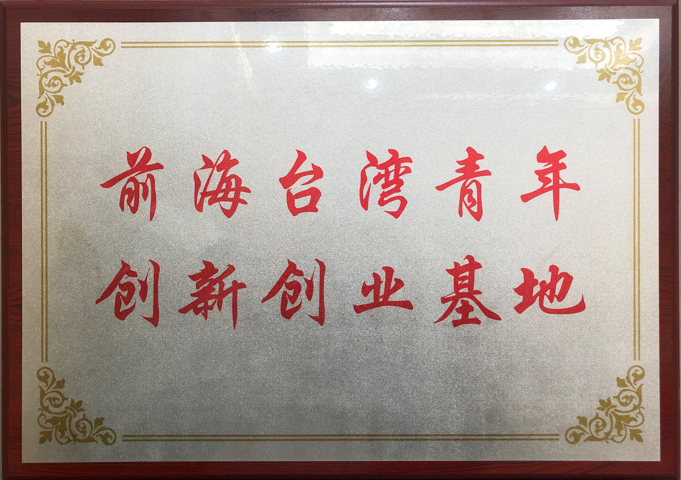 前海台湾青年
创新创业基地